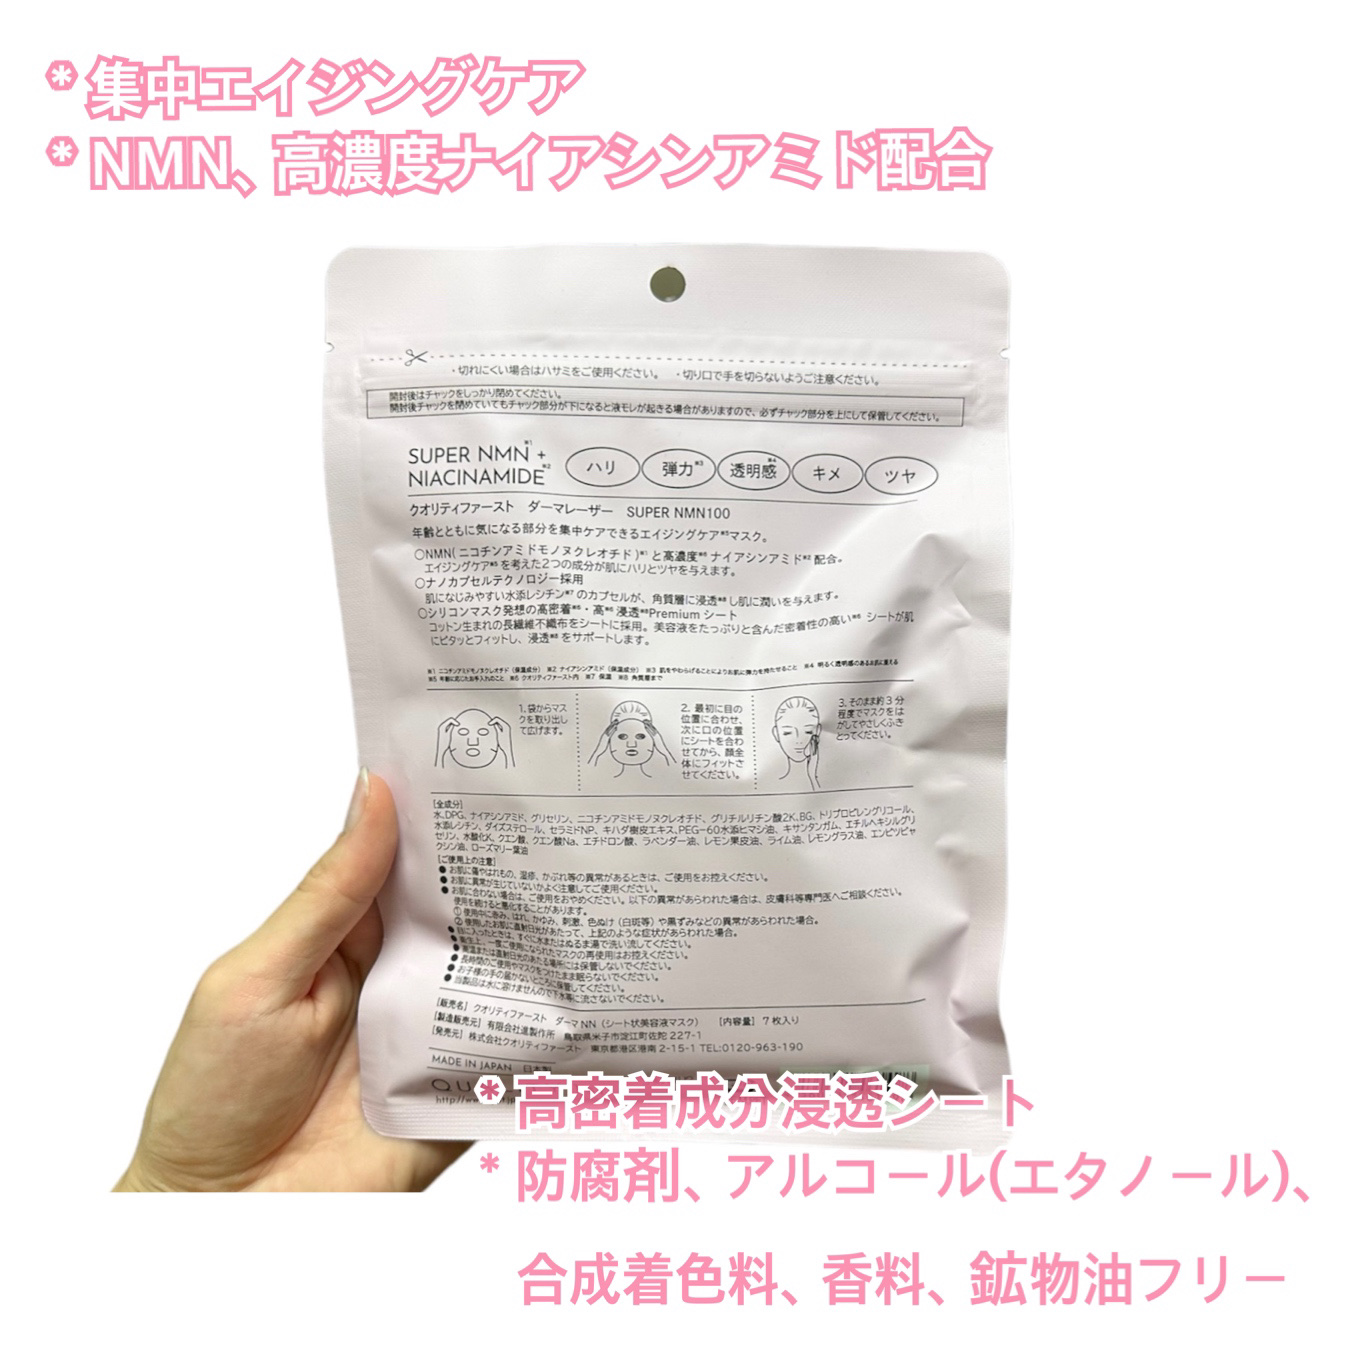 * 集中エイジングケア
* NMN、高濃度ナイアシンアミド配合
・切れにくい場合はハサミをご使用ください。 ・切り口で手を切らないようご注意ください。
開封後はチャックをしっかり閉めてください。
開封後チャックを閉めていてもチャック部分が下になると液モレが起きる場合がありますので、必ずチャック部分を上にして保管してください。
SUPER NMN※1 +
NIACINAMIDE※2
ハリ 弾力※3 透明感※4 キメ ツヤ
クオリティファースト ダーマレーザー SUPER NMN100
年齢とともに気になる部分を集中ケアできるエイジングケア※5マスク。
○NMN(ニコチンアミドモノヌクレオチド)※1 と高濃度※6 ナイアシンアミド※2 配合。
エイジングケア※5 を考えた2つの成分が肌にハリとツヤを与えます。
○ナノカプセルテクノロジー採用
肌になじみやすい水添レシチン※7 のカプセルが、角質層に浸透※8 し肌に潤いを与えます。
○シリコンマスク発想の高密着※6・高※6 浸透※8Premium シート
コットン生まれの長繊維不織布をシートに採用。美容液をたっぷりと含んだ密着性の高い※6 シートが肌
にピタッとフィットし、浸透※8 をサポートします。
※1 ニコチンアミドモノヌクレオチド（保湿成分） ※2 ナイアシンアミド（保湿成分） ※3 肌をやわらげることによりお肌に弾力を持たせること ※4 明るく透明感のあるお肌に整える
※5 年齢に応じたお手入れのこと ※6 クオリティファースト内 ※7 保湿 ※8 角質層まで
1. 袋からマス
クを取り出し
て広げます。
2. 最初に目の
位置に合わせ、
次に口の位置
にシートを合わ
せてから、顔全
体にフィットさ
せてください。
3. そのまま約３分
程度でマスクをは
がしてやさしくふき
とってください。
[全成分]
水、DPG、ナイアシンアミド、グリセリン、ニコチンアミドモノヌクレオチド、グリチルリチン酸2K、BG、トリプロピレングリコール、
水添レシチン、ダイズステロール、セラミドNP、キハダ樹皮エキス、PEG-60水添ヒマシ油、キサンタンガム、エチルヘキシルグリ
セリン、水酸化K、クエン酸、クエン酸Na、エチドロン酸、ラベンダー油、レモン果皮油、ライム油、レモングラス油、エンピツビャ
クシン油、ローズマリー葉油
[ご使用上の注意]
● お肌に傷やはれもの、湿疹、かぶれ等の異常があるときは、ご使用をお控えください。
● お肌に異常が生じていないかよく注意してご使用ください。
● お肌に合わない場合は、ご使用をおやめください。以下の異常があらわれた場合は、皮膚科等専門医へご相談ください。
使用を続けると悪化することがあります。
① 使用中に赤み、はれ、かゆみ、刺激、色ぬけ（白斑等）や黒ずみなどの異常があらわれた場合。
② 使用したお肌に直射日光があたって、上記のような症状があらわれた場合。
● 目に入ったときは、すぐに水またはぬるま湯で洗い流してください。
● 衛生上、一度ご使用になられたマスクの再使用はお控えください。
● 高温または直射日光のあたる場所には保管しないでください。
● 長時間のご使用やマスクをつけたまま眠らないでください。
● お子様の手の届かないところに保管してください。
● 当製品は水に溶けませんので下水等に流さないでください。
[販売名] クオリティファースト ダーマ NN（シート状美容液マスク） [内容量] 7 枚入り
[製造販売元] 有限会社進製作所 鳥取県米子市淀江町佐陀 227-1
[発売元] 株式会社クオリティファースト 東京都港区港南 2-15-1 TEL:0120-963-190
MADE IN JAPAN 日本製
* 高密着成分浸透シート
* 防腐剤、アルコール(エタノール)、
合成着色料、香料、鉱物油フリー